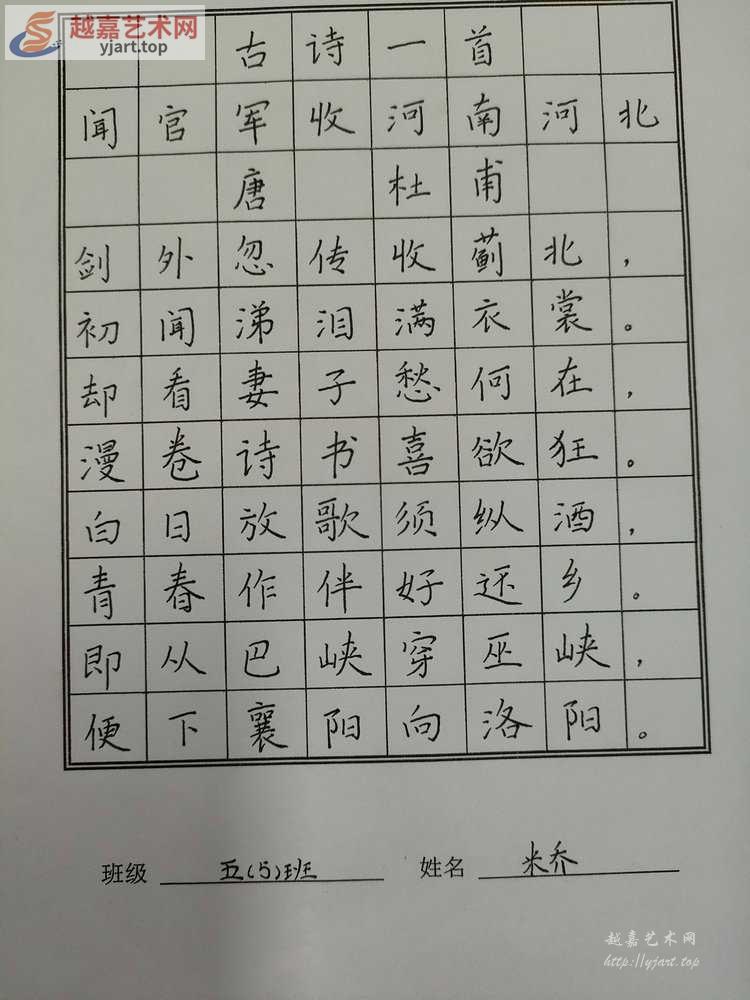 越嘉艺术网
yjart.top
古诗一首
闻官军收河南河北
唐 杜甫
剑外忽传收蓟北，
初闻涕泪满衣裳。
却看妻子愁何在，
漫卷诗书喜欲狂。
白日放歌须纵酒，
青春作伴好还乡。
即从巴峡穿巫峡，
便下襄阳向洛阳。
班级 五(5)班 姓名 米乔
越嘉艺术网
http://yjart.top